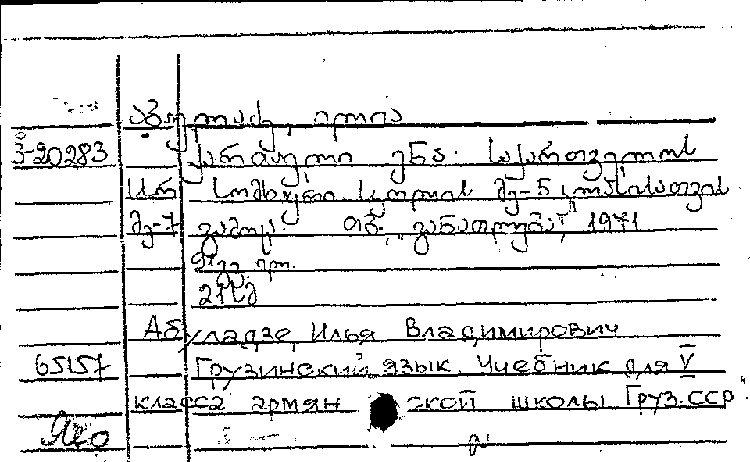 აბულაძე, ილია
3-20283 ქართული ენა. საქართველოს
სსრ სომხური სკოლის მე-5 კლასისათვის
მე-7 გამოც. თბ., "განათლება", 1971
212გ
Абуладзе, Илья Владимирович
65157 Грузинский язык. Учебник для V
класса армян ской школы Груз.ССР.